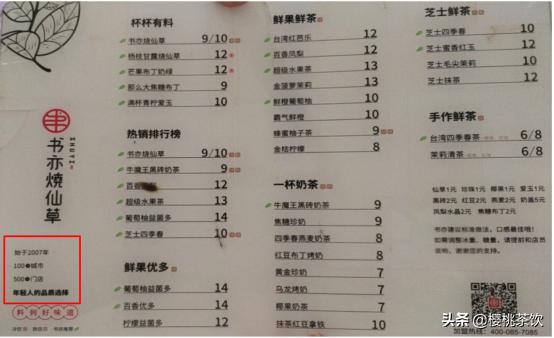 SHUYI
书亦燒仙草
始于2007年
100●城市
500●门店
年轻人的品质选择
料到好味道
杯杯有料
书亦烧仙草 9/10
杨枝甘露烧仙草 12
芒果布丁奶绿 12
那么大焦糖布丁 9
满杯青柠爱玉 10
热销排行榜
书亦烧仙草 9/10
牛魔王黑砖奶茶 9
百香 12
超级水果茶 13
葡萄柚益菌多 14
芝士四季春 10
鲜果优多
葡萄柚益菌多 14
百香优多 14
柠檬益菌多 12
鲜果鲜茶
台湾红芭乐 12
百香凤梨 12
超级水果茶 13
金菠萝茉莉 13
鲜橙葡萄柚 10
霸气鲜橙 10
蜂蜜柚子茶 9
金桔柠檬 8
一杯奶茶
牛魔王黑砖奶茶 9
焦糖珍奶 9
四季春燕麦奶茶 8
红豆布丁烤奶 8
黄金珍奶 7
乌龙烤奶 7
椰果奶茶 7
抹茶红豆拿铁 10
芝士鲜茶
芝士四季春 10
芝士蜜香红玉 12
芝士毛尖茉莉 10
芝士抹茶 12
手作鲜茶
台湾四季春茶 6/8
茉莉清茶 6/8
仙草1元 珍珠1元 椰果1元 爱玉1元
黑砖2元 红豆2元 燕麦2元 奶盖5元
凤梨水晶2元 焦糖布丁2元
书亦建议标准做法，口感最佳哦！
如需调整冰量、糖量，请提前和店员
说明，谢谢您的支持！
加盟热线：400-085-7085
头条@樱桃茶饮